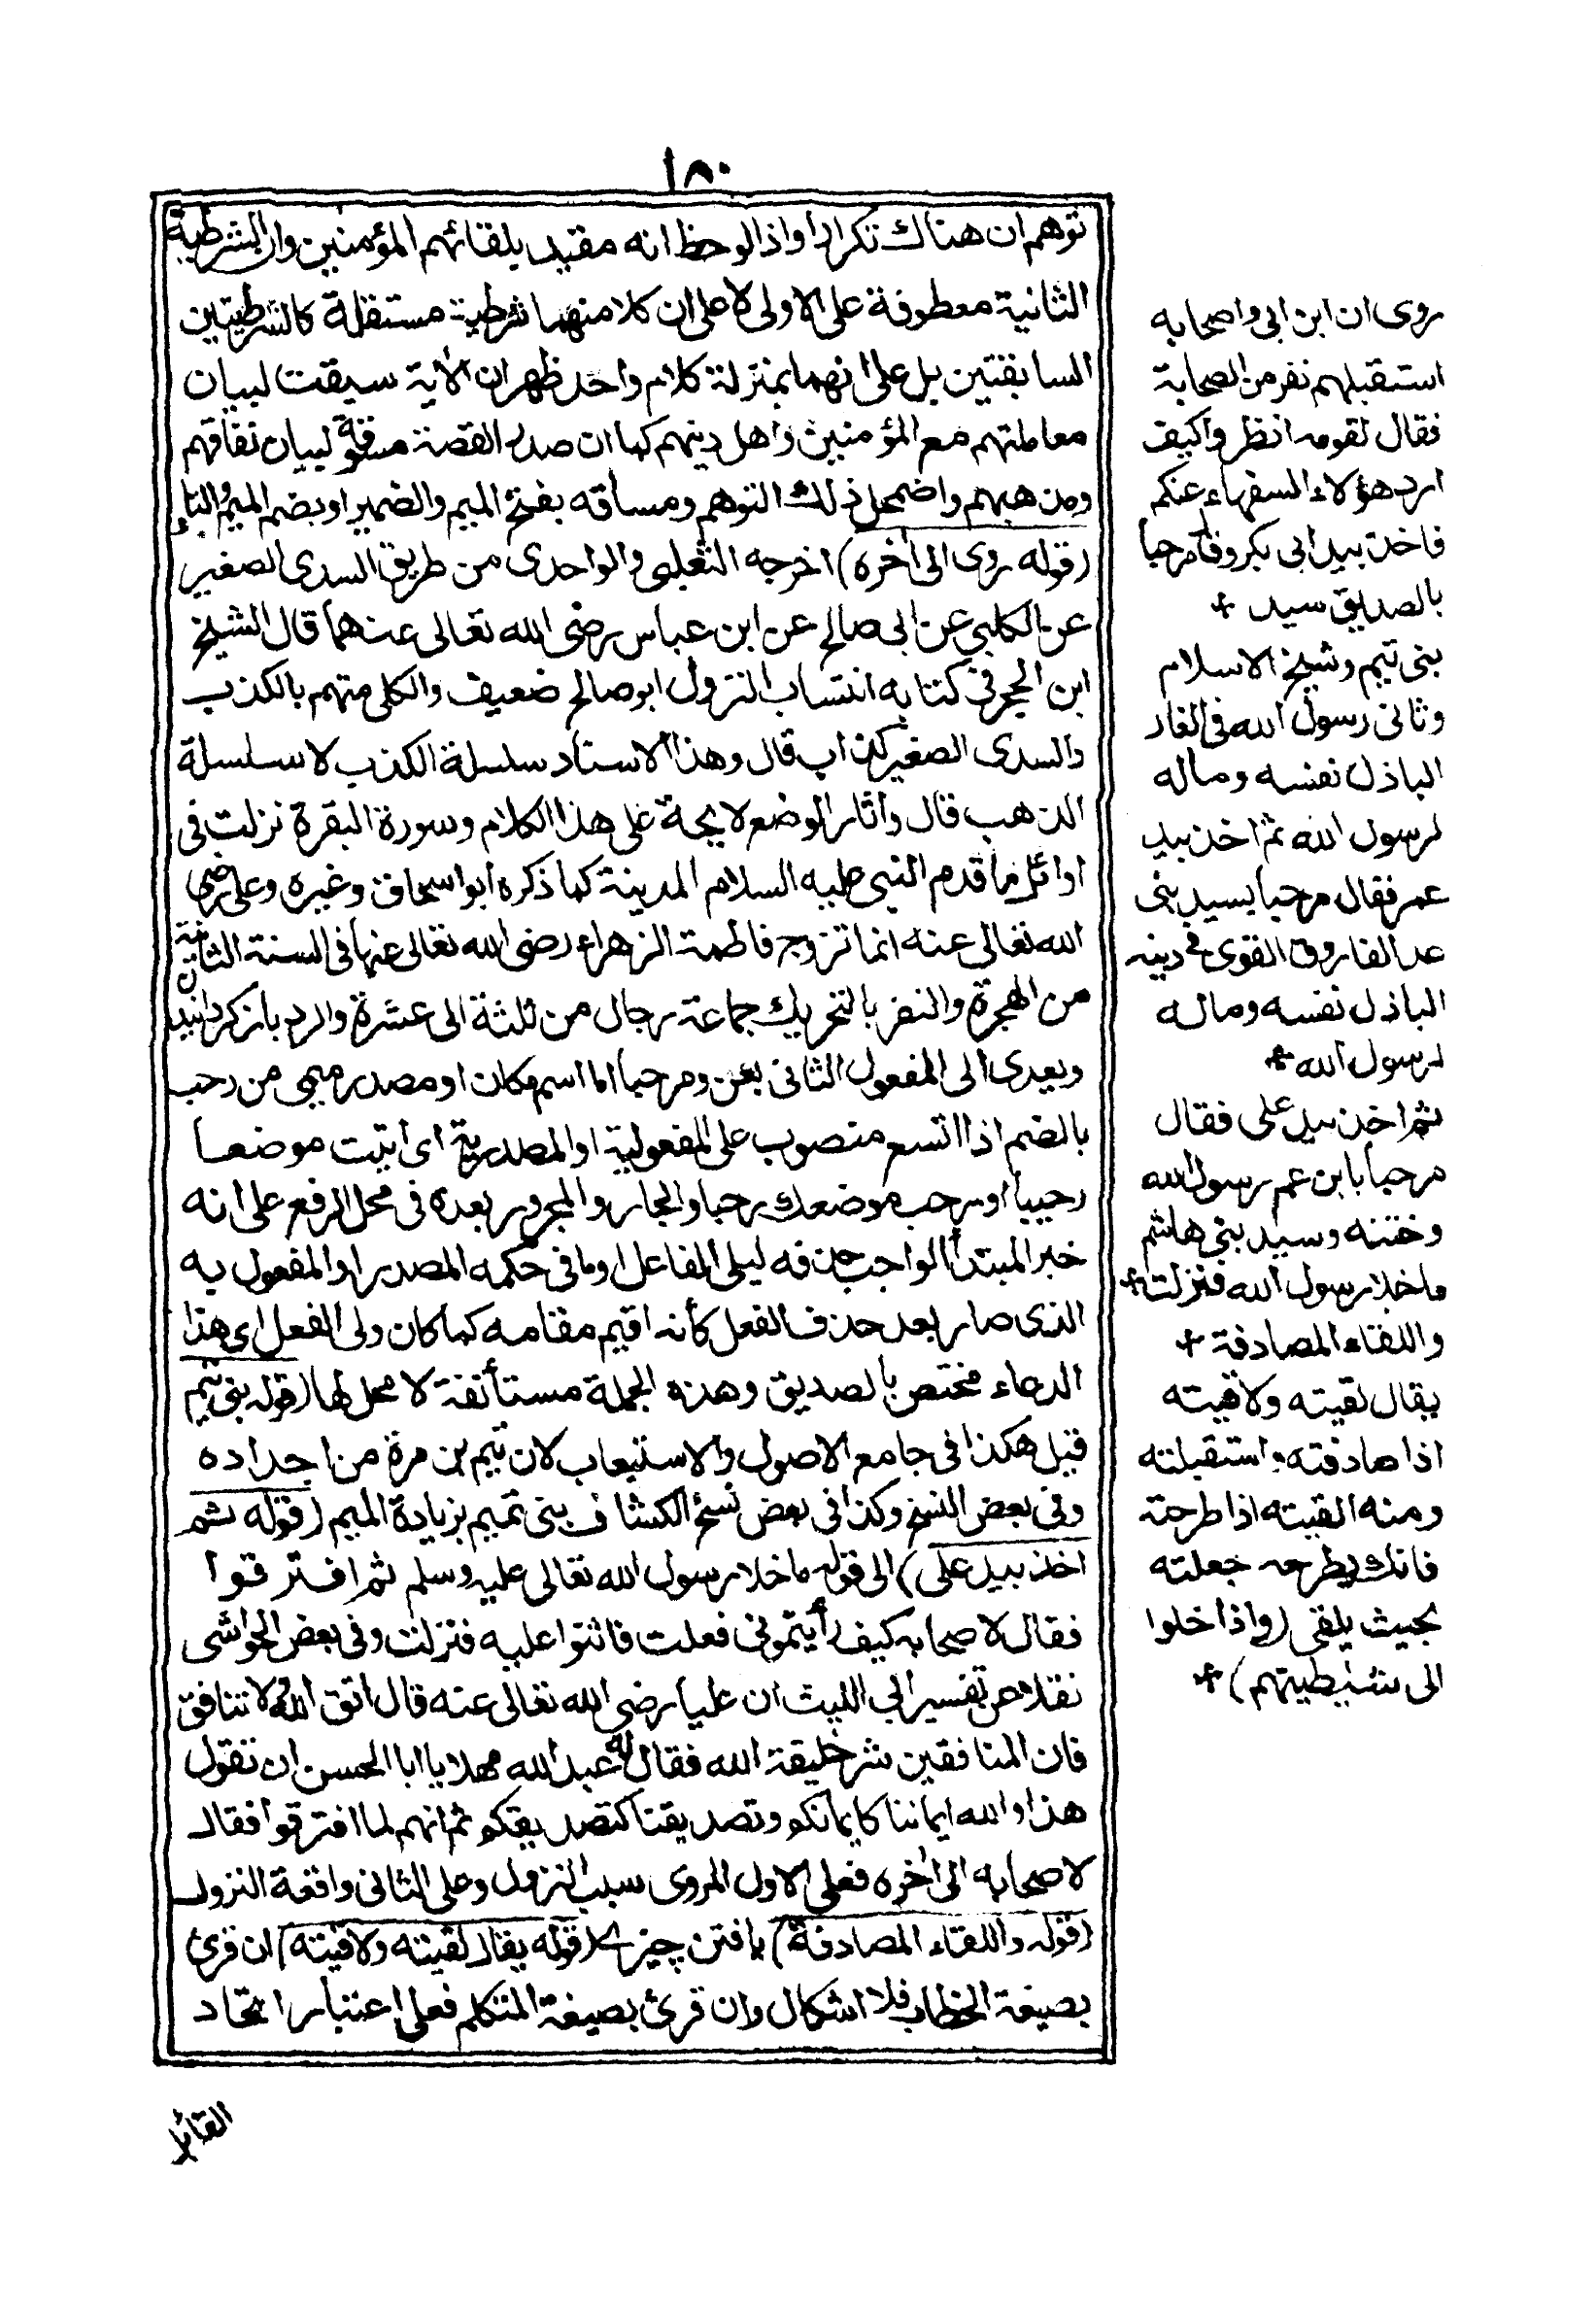 ١٨٠
توهم ان هناك تكرارا واذا لوحظ انه مقيد بلقائهم المؤمنين وان الشرطية
الثانية معطوفة على الاولى لا على ان كلا منهما شرطية مستقلة كالشرطيتين
السابقتين بل على انهما بمنزلة كلام واحد ظهر ان الاية سيقت لبيان
معاملتهم مع المؤمنين واهل دينهم كما ان صدر القصة مسوقة لبيان نفاقهم
ومذهبهم واضمحل ذلك التوهم ومساقه بفتح الميم والضمير او بضم الميم والتاء
(قوله روى الى اخره) اخرجه الثعلبى والواحدى من طريق السدى الصغير
عن الكلبي عن ابى صالح عن ابن عباس رضى الله تعالى عنهما قال الشيخ
ابن الحجر فى كتابه انتساب النزول ابو صالح ضعيف والكلبى متهم بالكذب
والسدى الصغير كذاب قال وهذا الاسناد سلسلة الكذب لا سلسلة
الذهب قال واثار الوضع لايحة على هذا الكلام وسورة البقرة نزلت فى
اوائل ما قدم النبى عليه السلام المدينة كما ذكره ابو اسحاق وغيره وعلى رضى
الله تعالى عنه انما تزوج فاطمة الزهراء رضى الله تعالى عنها فى السنة الثانية
من الهجرة والنفر بالتحريك جماعة رجال من ثلثة الى عشرة والرد بازگردانيدن
ويعدى الى المفعول الثانى بعن ومرحبا اما اسم مكان او مصدر ميمى من رحب
بالضم اذا اتسع منصوب على المفعولية او المصدرية اى اتيت موضعا
رحيبا او رحب موضعك رحبا والجار والمجرور بعده فى محل الرفع على انه
خبر المبتدأ الواجب حذفه ليلى الفاعل او ما فى حكمه المصدر او المفعول به
الذى صار بعد حذف الفعل كأنه اقيم مقامه كما كان ولى الفعل اى هذا
الدعاء مختص بالصديق وهذه الجملة مستأنفة لا محل لها (قوله بنى تيم
قيل هكذا فى جامع الاصول والاستيعاب لان تيم بن مرة من اجداده
وفى بعض النسخ وكذا فى بعض نسخ الكشاف بنى تميم بزيادة الميم (قوله ثم
اخذ بيد على) الى قوله ما خلا رسول الله تعالى عليه وسلم ثم افترقوا
فقال لاصحابه كيف رأيتمونى فعلت فاثنوا عليه فنزلت وفى بعض الحواشى
نقلا عن تفسير ابى الليث ان عليا رضى الله تعالى عنه قال اتق الله ولا تنافق
فان المنافقين شر خليقة الله فقال له عبد الله مهلا يا ابا الحسن ان تقول
هذا والله ايماننا كايمانكم وتصديقنا كتصديقكم ثم انهم لما افترقوا فقال
لاصحابه الى اخره فعلى الاول المروى سبب النزول وعلى الثانى واقعة النزول
(قوله واللقاء المصادفة) يافتن چيزے (قوله يقال لقيته ولاقيته) ان قرئ
بصيغة الخطاب فلا اشكال وان قرئ بصيغة المتكلم فعلى اعتبار اتحاد
القائل
روى ان ابن ابى واصحابه
استقبلهم نفر من الصحابة
فقال لقومه انظروا كيف
ارد هؤلاء السفهاء عنكم
فاخذ بيد ابى بكر وقال مرحبا
بالصديق سيد +
بنى تيم وشيخ الاسلام
وثانى رسول الله فى الغار
الباذل نفسه وماله
لرسول الله ثم اخذ بيد
عمر فقال مرحبا بسيد بنى
عدالفاروق القوى فى دينه
الباذل نفسه وماله
لرسول الله +
ثم اخذ بيد على فقال
مرحبا بابن عم رسول الله
وختنه وسيد بنى هاشم
ما خلا رسول الله فنزلت +
واللقاء المصادفة +
يقال لقيته ولاقيته
اذا صادفته واستقبلته
ومنه القيته اذا طرحته
فانك بطرحه جعلته
بحيث يلقى (واذا خلوا
الى شيطينهم) +